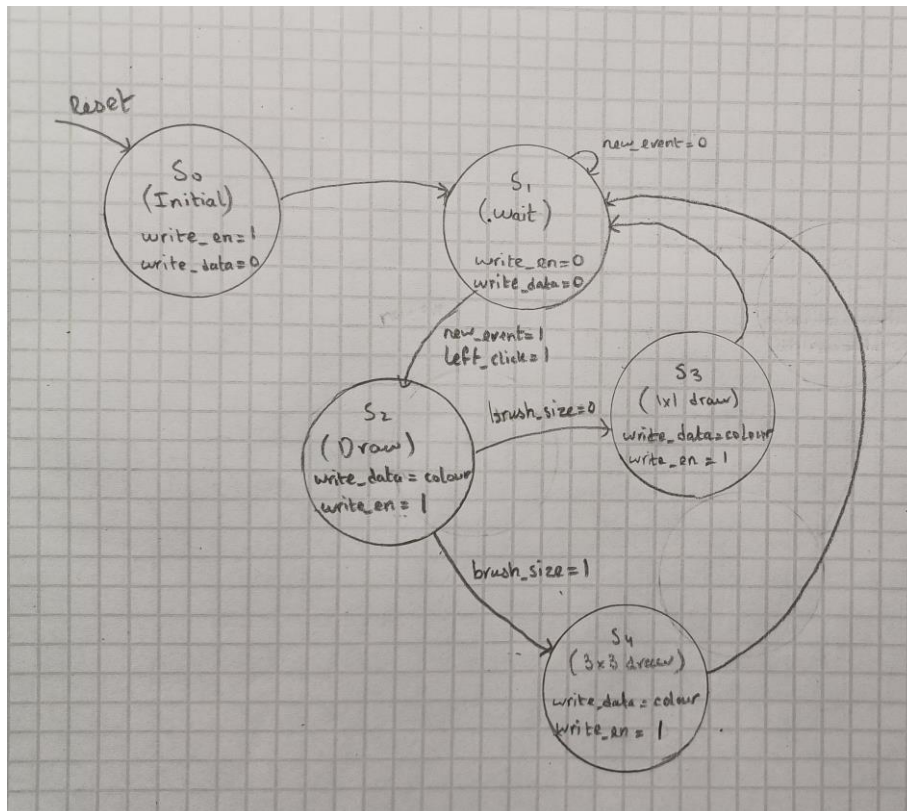 Reset
S0
(Initial)
write_en=1
write_data=0
new_event=0
S1
(.wait)
write_en=0
write_data=0
new_event=1
left_click=1
S2
(Draw)
write_data=colour
write_en=1
brush_size=0
S3
(1x1 draw)
write_data=colour
write_en=1
brush_size=1
S4
(3x3 draw)
write_data=colour
write_en=1